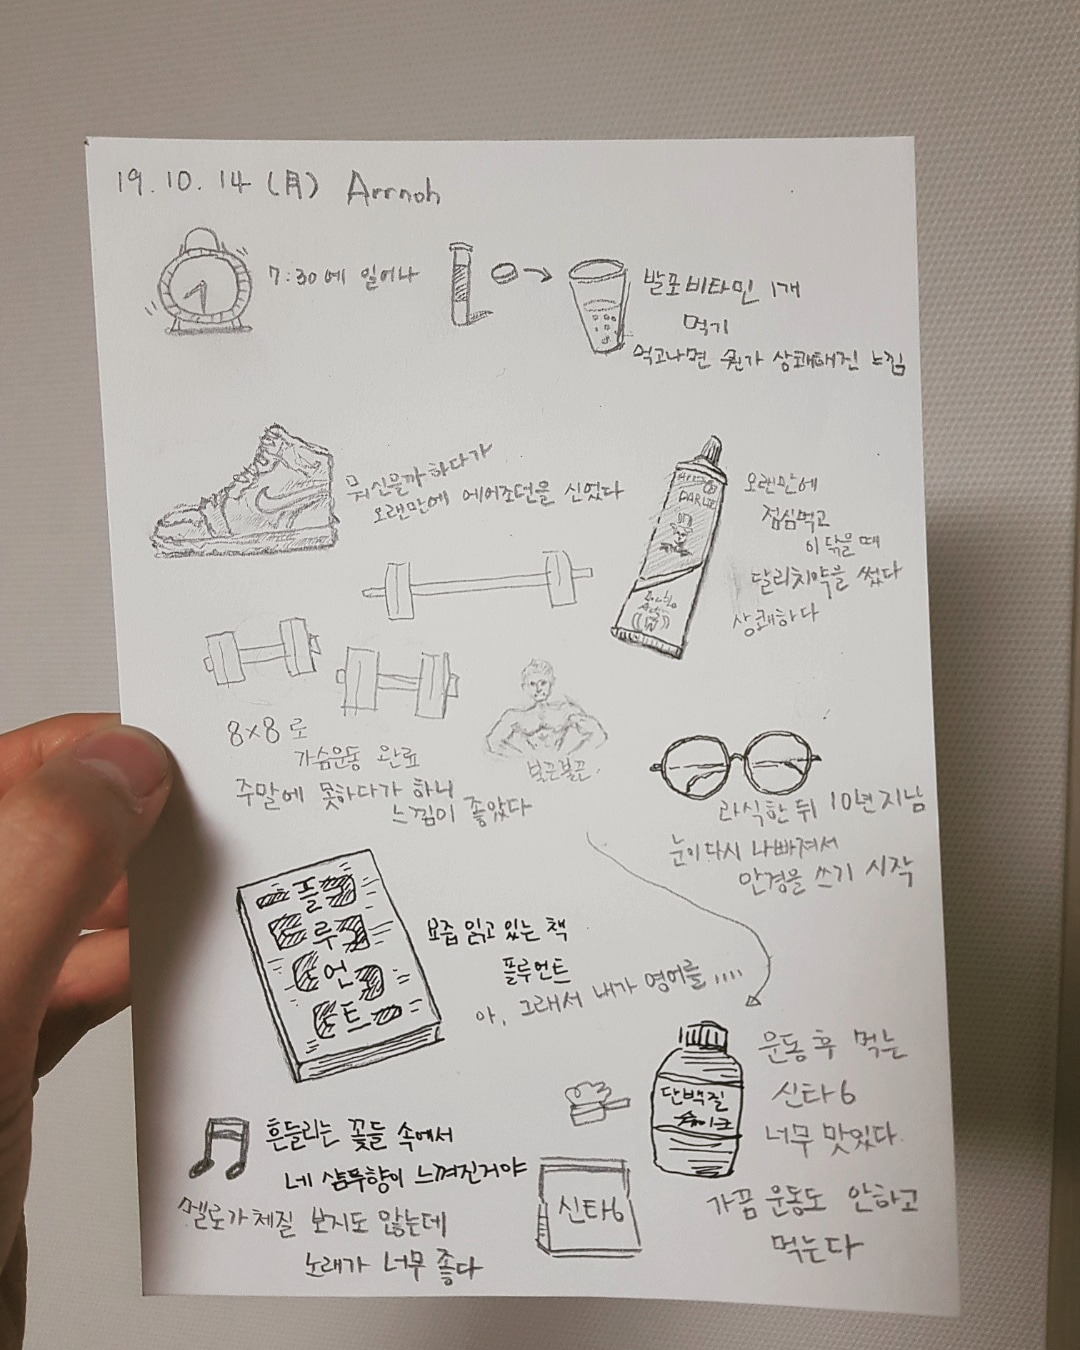 19.10.14 (月) Arrnoh
7:30에 일어나
발포비타민 1개
먹기
먹고나면 뭔가 상쾌해진 느낌
뭐신을까 하다가
오랜만에 에어조던을 신었다
DARLIE
오랜만에
점심먹고
이 닦을 때
달리치약을 썼다
상쾌하다
8x8로
가슴운동 완료
주말에 못하다가 하니
느낌이 좋았다
불끈불끈.
라식한 뒤 10년 지남
눈이 다시 나빠져서
안경을 쓰기 시작
플
루
언
트
요즘 읽고 있는 책
플루언트
아, 그래서 내가 영어를....
단백질
쉐이크
운동 후 먹는
신타6
너무 맛있다.
가끔 운동도 안하고
먹는다
신타6
흔들리는 꽃들 속에서
네 샴푸향이 느껴진거야
멜로가체질 보지도 않는데
노래가 너무 좋다